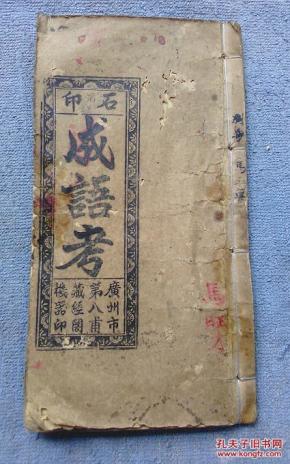 石印
成語考
廣州市
第八甫
藏經閣
機器印
孔夫子旧书网
www.kongfz.com